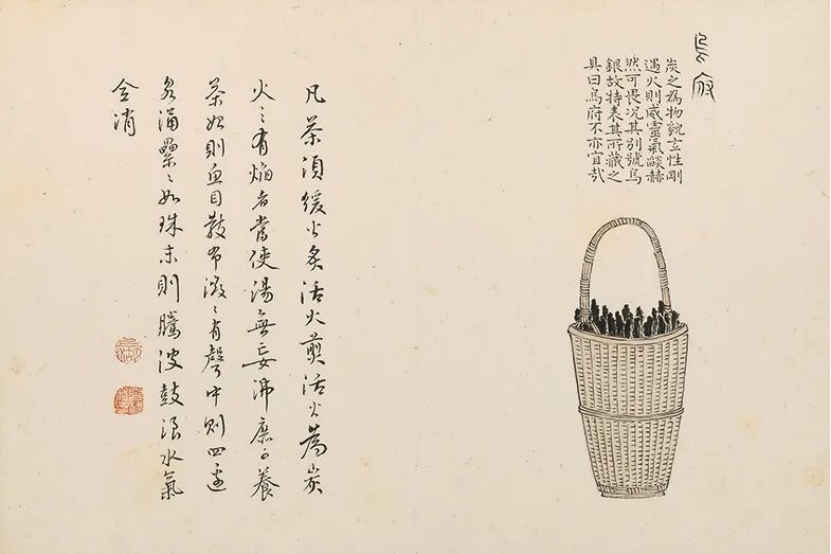 烏府
炭之為物貌玄性剛
遇火則威靈氣燄赫
然可畏況其別號烏
銀故特表其所藏之
具曰烏府不亦宜哉
凡茶須緩火炙活火煎活火為炭
火之有焰者當使湯無妄沸庶可養
茶始則魚目散布微〻有聲中則四邊
泉涌纍〻如珠末則騰波鼓浪水氣
全消